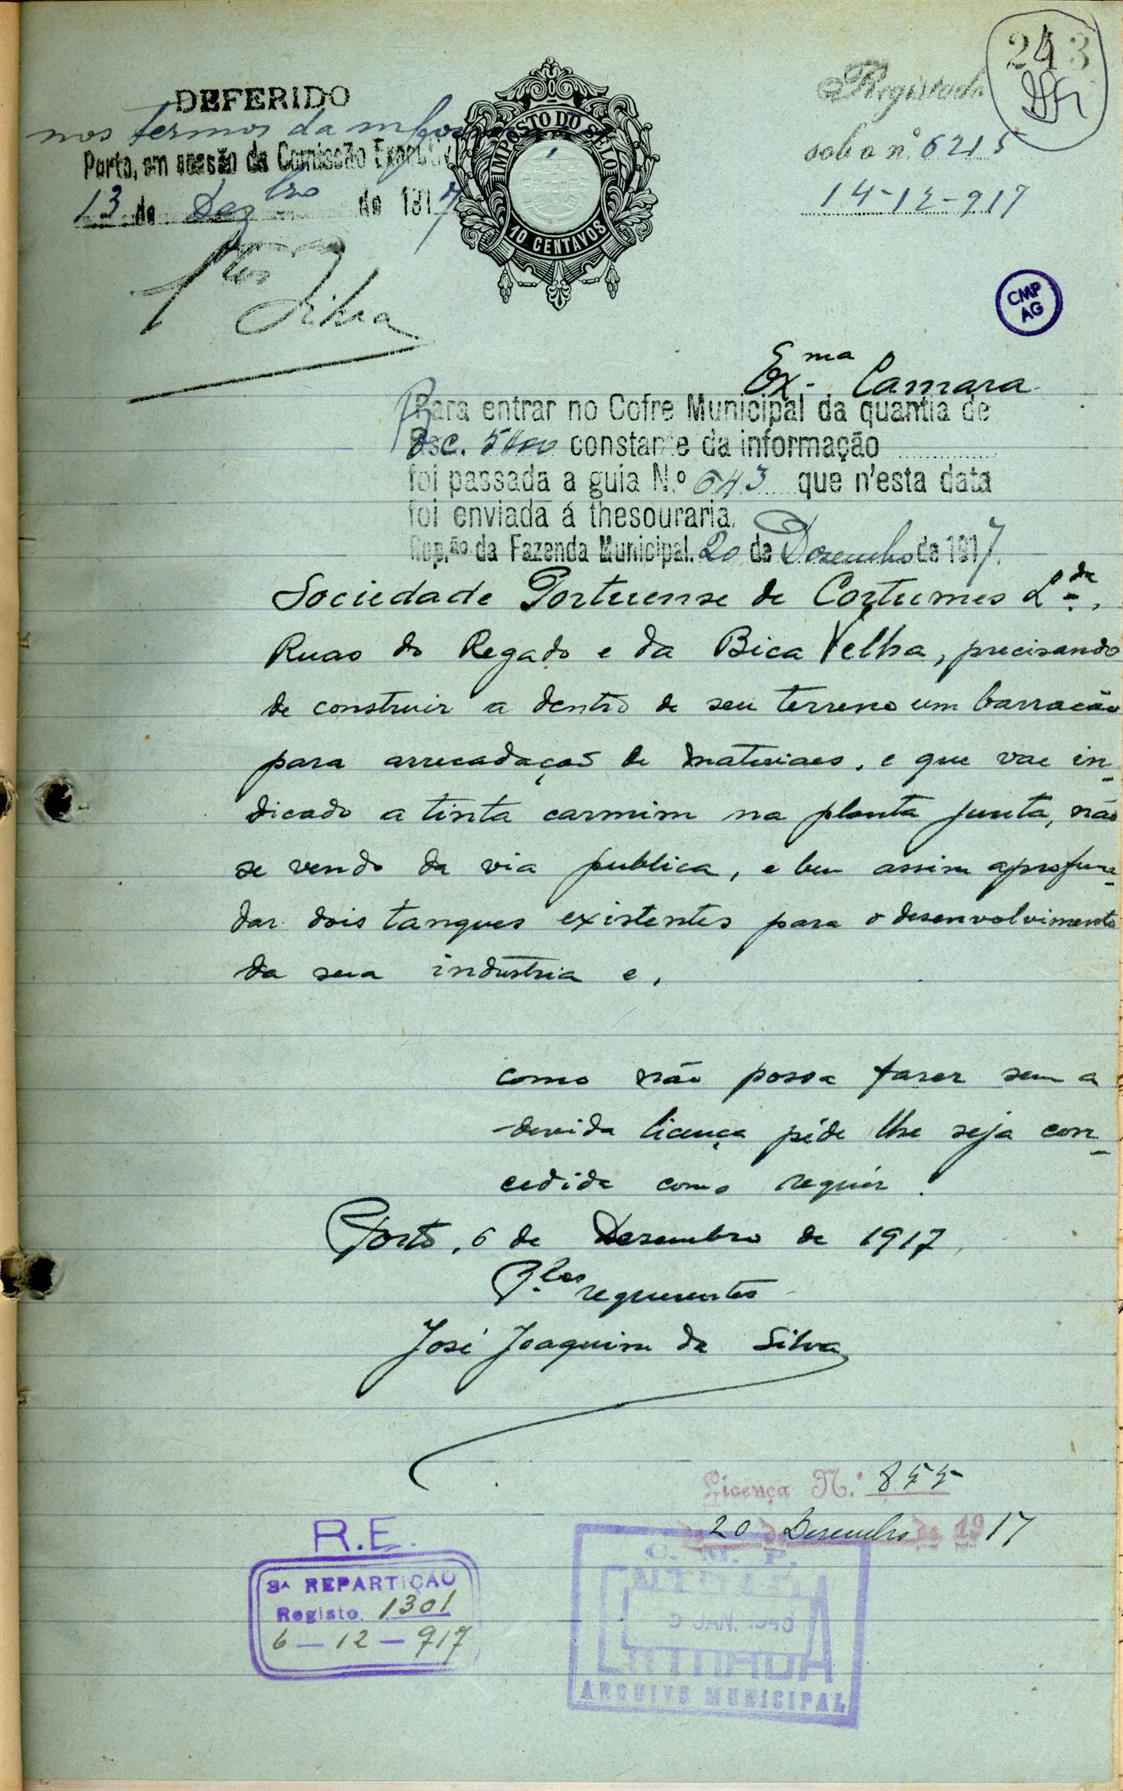 243
DEFERIDO
nos termos da informação
Porto, em sessão da Comissão Executiva
13 de Dezbro de 1917
Silva
IMPOSTO DO SELO
10 CENTAVOS
Registado
sob o nº 6215
14-12-917
CMP
AG
Exma Camara
Para entrar no Cofre Municipal da quantia de
Esc. 5$00 constante da informação
foi passada a guia N.º 643 que n'esta data
foi enviada á thesouraria.
Rep.ão da Fazenda Municipal. 20 de Dezembro de 1917.
Sociedade Portuense de Cortumes Lda,
Ruas do Regado e da Bica Velha, precisando
de construir a dentro de seu terreno um barracão
para arrecadação de materiaes, e que vae in-
dicado a tinta carmim na planta junta, não
se vendo da via publica, e bem assim aprofun-
dar dois tanques existentes para o desenvolvimento
da sua industria e,
como não possa fazer sem a
devida licença péde lhe seja con-
cedida como requér.
Porto, 6 de Dezembro de 1917
Plos requerentes
José Joaquim da Silva
Licença N.º 855
20 de Dezembro de 1917
R.E.
3ª REPARTIÇÃO
Registo 1301
6-12-917
C. M. P.
9 JAN. 1946
ENTRADA
ARQUIVO MUNICIPAL